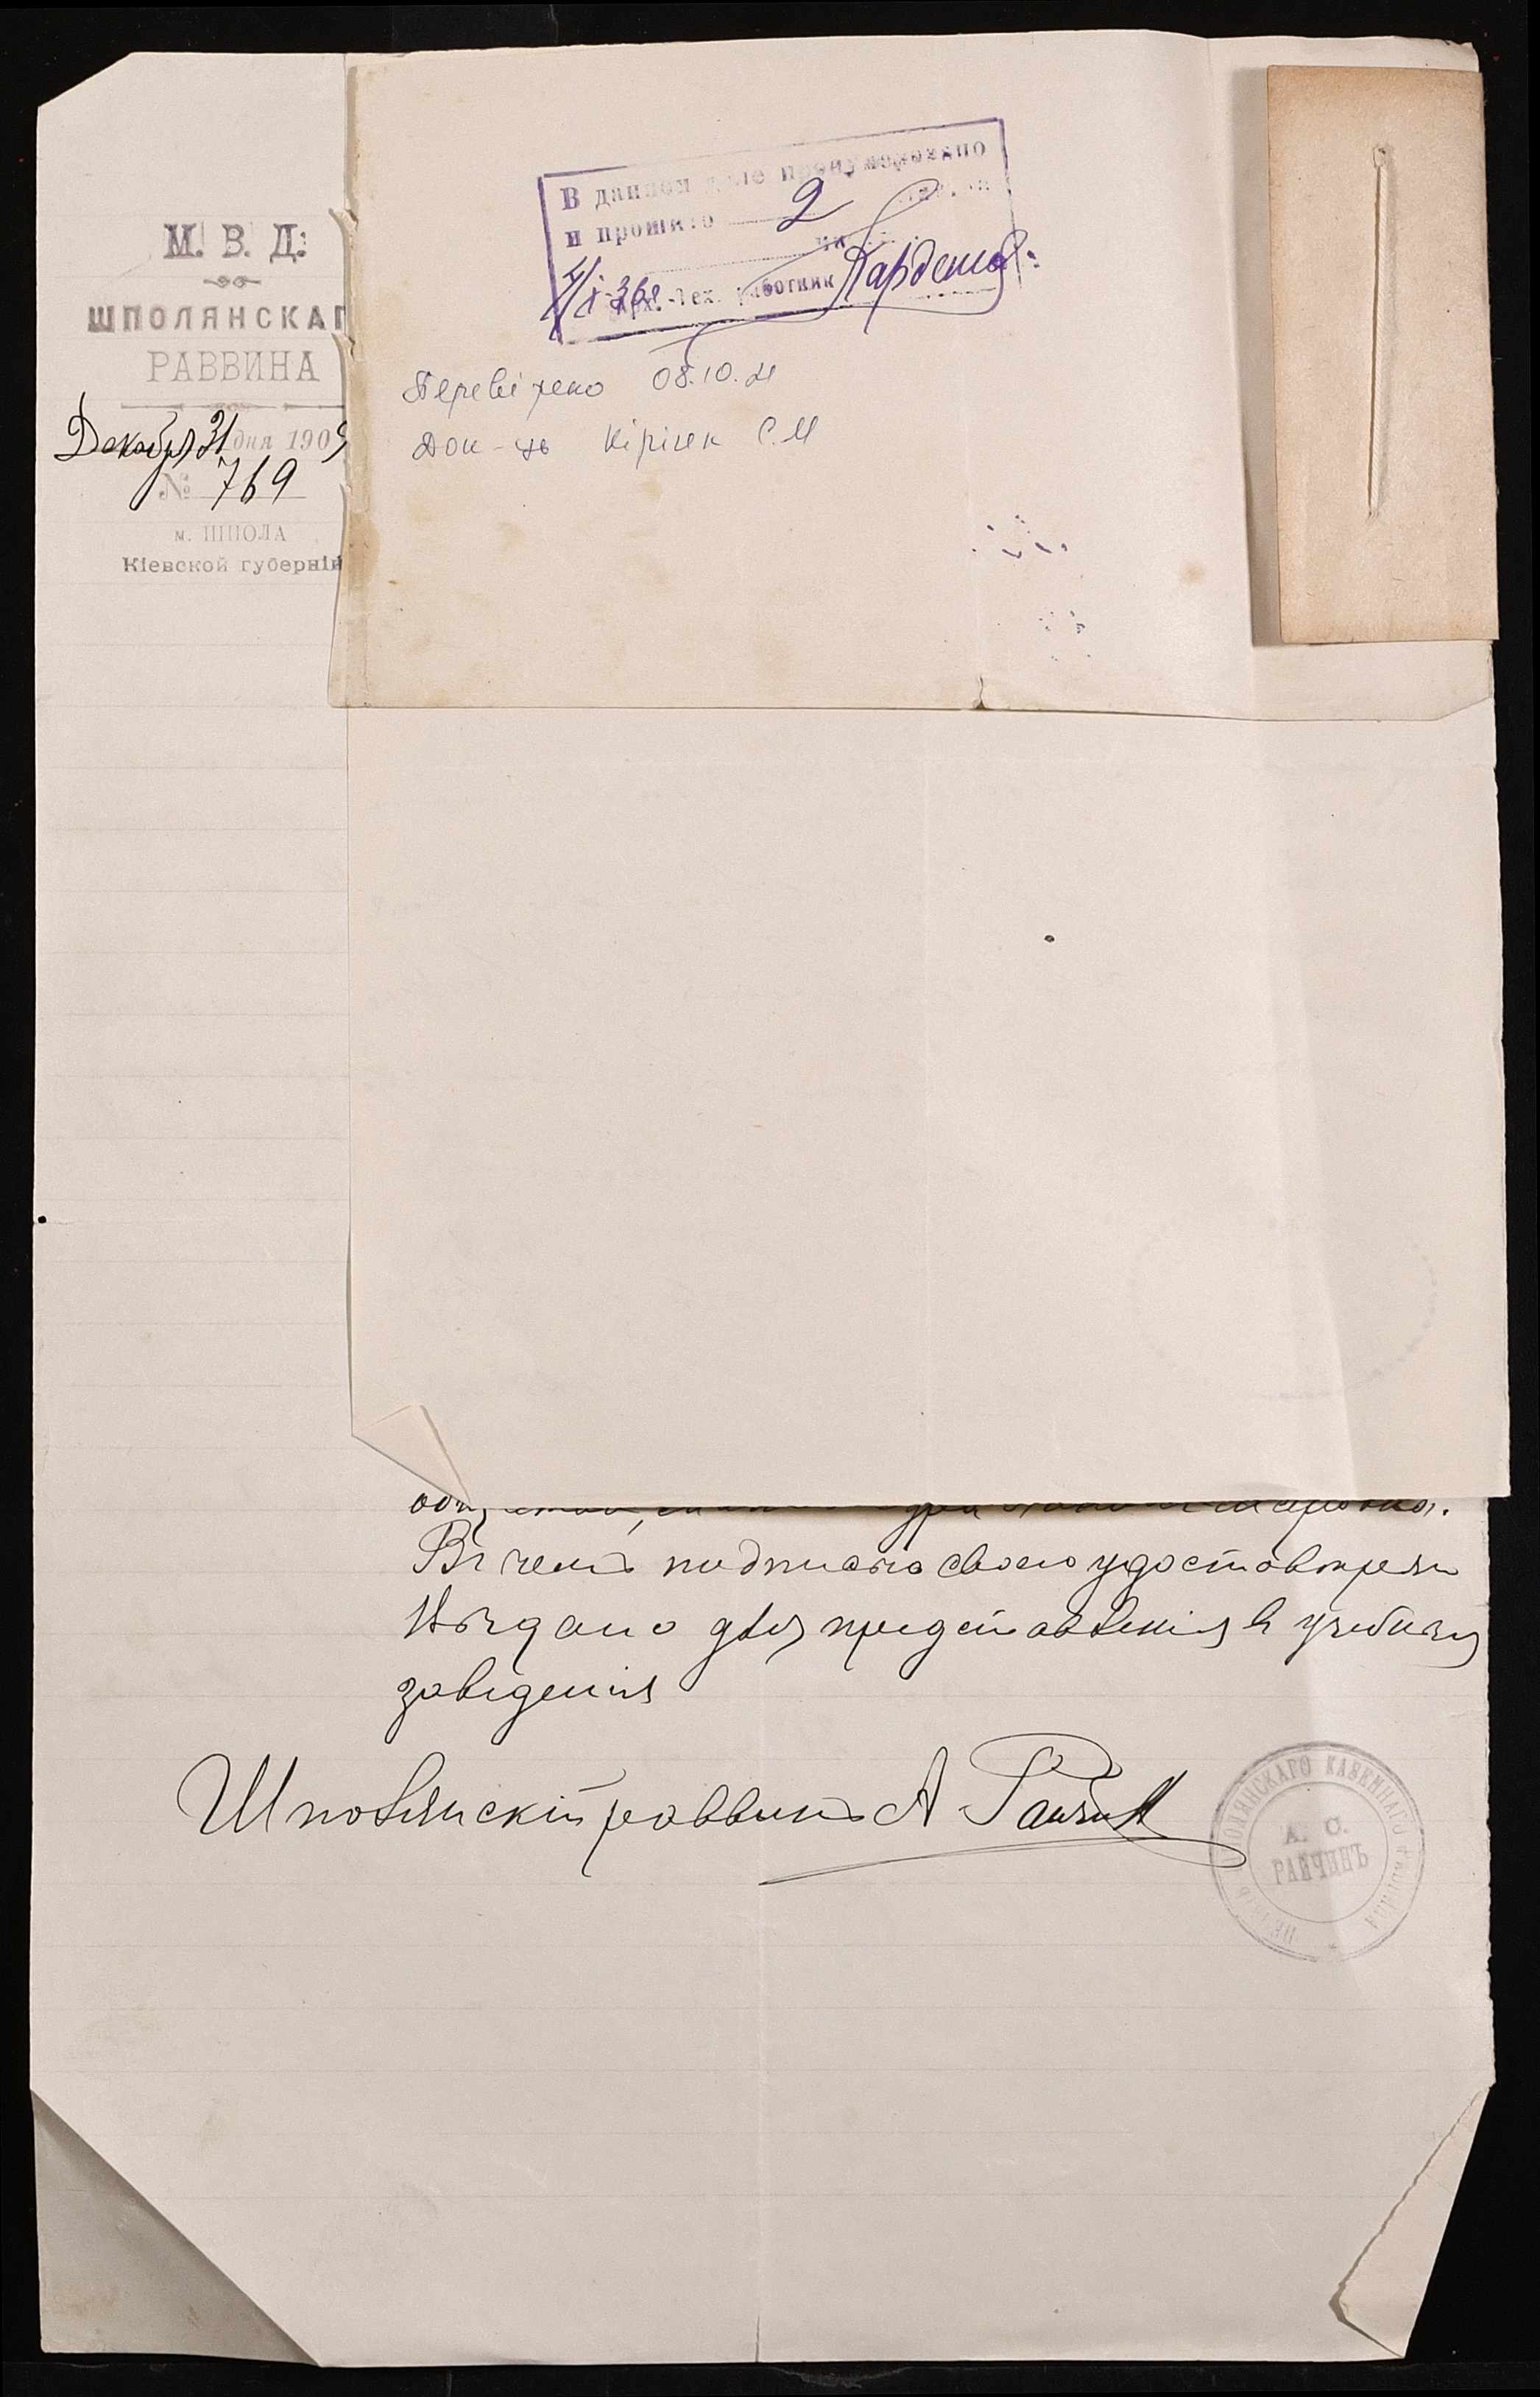 М. В. Д.
ШПОЛЯНСКАГ
РАВВИНА
Декабря 31 дня 1909
№ 769
м. ШПОЛА
Кіевской губерніи
В данном деле пронумеровано
и прошито 2
на
Арх.-Тех. работник
Перевірено 08.10.21
Док-ць Кірієк С.М
Въ чемъ подписью своею удостовѣряю
Выдано для представленія в учебныя
заведенія
Шполянскій раввинъ А Райчинъ
ПЕЧАТЬ ШПОЛЯНСКАГО КАЗЕННАГО РАВВИНА
А. С.
РАЙЧИНЪ